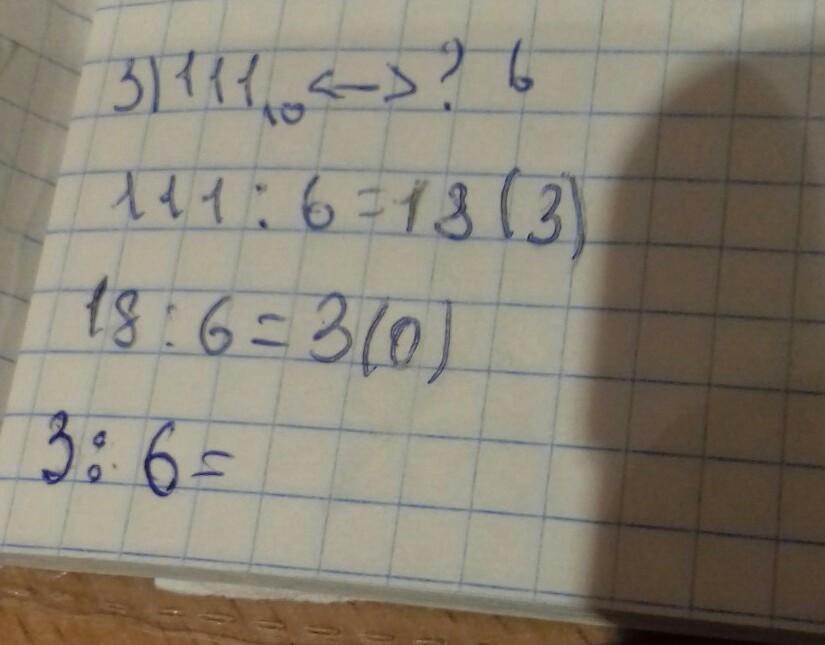 3) 111₁₀ <-> ? 6
111 : 6 = 18 (3)
18 : 6 = 3 (0)
3 : 6 =